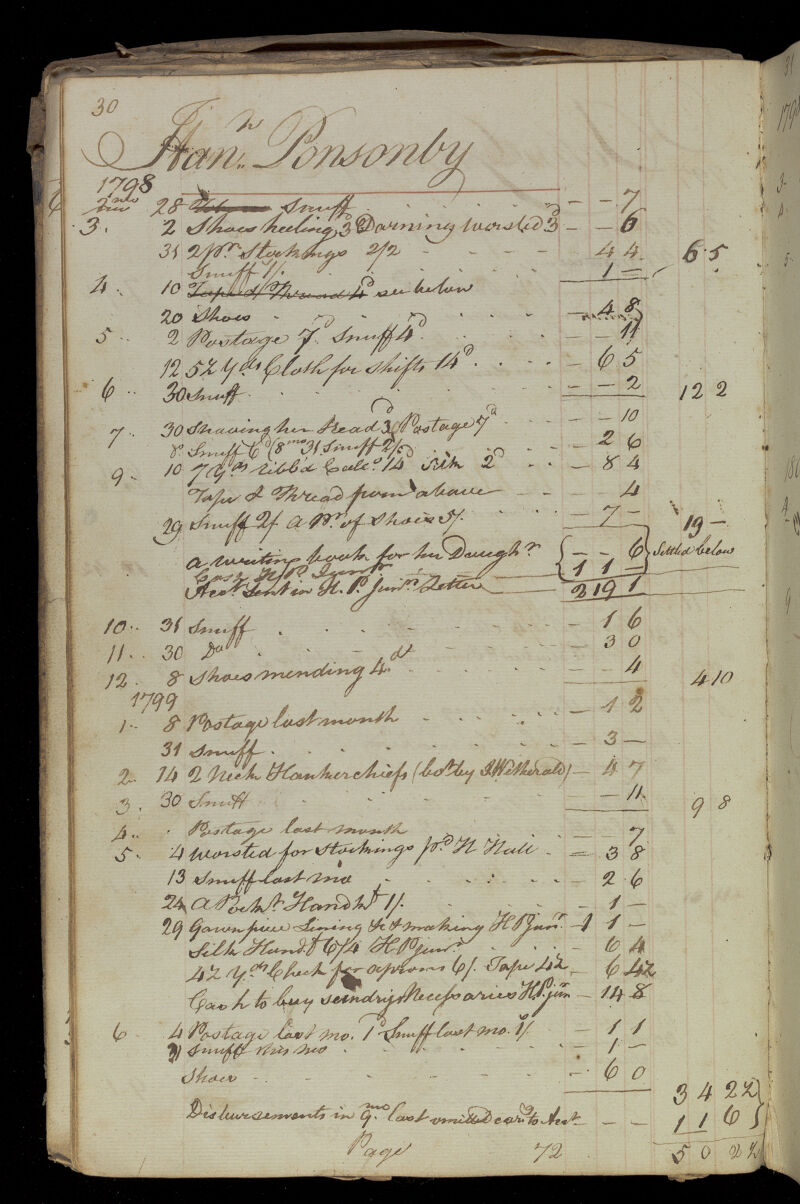 30
Han.h Ponsonby
1798
2mo 28 Snuff - - 7
3. 2 Shoes heeling 3d Darning worsted 3d - - 6
31 2 pr. Stockings 2/2 - 4 4 6. 5
Snuff 1/. 1 -
4. 10 Tape & Thread 4d see below
20 Shoes - 4 8
5 2 Postage 7d. Snuff 4d - - 11
12 5½ yds Cloth for shifts 14d - 6 5
6 30 Snuff - - 2 12 2
7. 30 Shaving her Head 3d Postage 7d - - 10
8. Snuff 6d (8mo 31 Snuff 2/.) - 2 6
9. 10 7 yds ribb'd Calco. 14d Silk 2d - 8 4
Tape & Thread from above - - 4
29 Snuff 2/ a Pr. of Shoes 5/. - 7 - 19 -
a writing book for her Daughr. - - 6 Settled below
Cash H. P. Junr. 1 1 -
Acct. sent in H. P. Junrs. Letter 2 19 1
10.. 31 Snuff - 1 6
11.. 30 Do - 3 0
12. 8 Shoes mending 4d. - - 4 4 10
1799
1.. 8 Postage last month - 1 2
31 Snuff - 3 -
2. 14 2 Neck Hankerchiefs (bot. by I Witherald) - 4 7
3. 30 Snuff - - 11. 9 8
4.. Postage last month - - 7
5. 4 worsted for Stockings pd. H Hull - 3 8
13 Snuff last mo - 2 6
24 A Pockt. Handkf. 1/. - 1 -
29 Gown piece Lining &c & making H P Junr. - 1 1 -
Silk Handkf. 6/4 H. P. junr. - 6 4
4½ yds Check for aprons 6/. Tape 4½ - 6 4½
Cash to buy sundry Necessaries H.P. jun - 14 8
6 4 Postage last mo. 1d Snuff last mo. 1/. - 1 1
31 Snuff this mo - 1 -
Shoes - 6 0
3 4 2½
Disbursements in 9mo. last omitted card. to Acct. - - 1 1 6
Page 72 5 0 2½